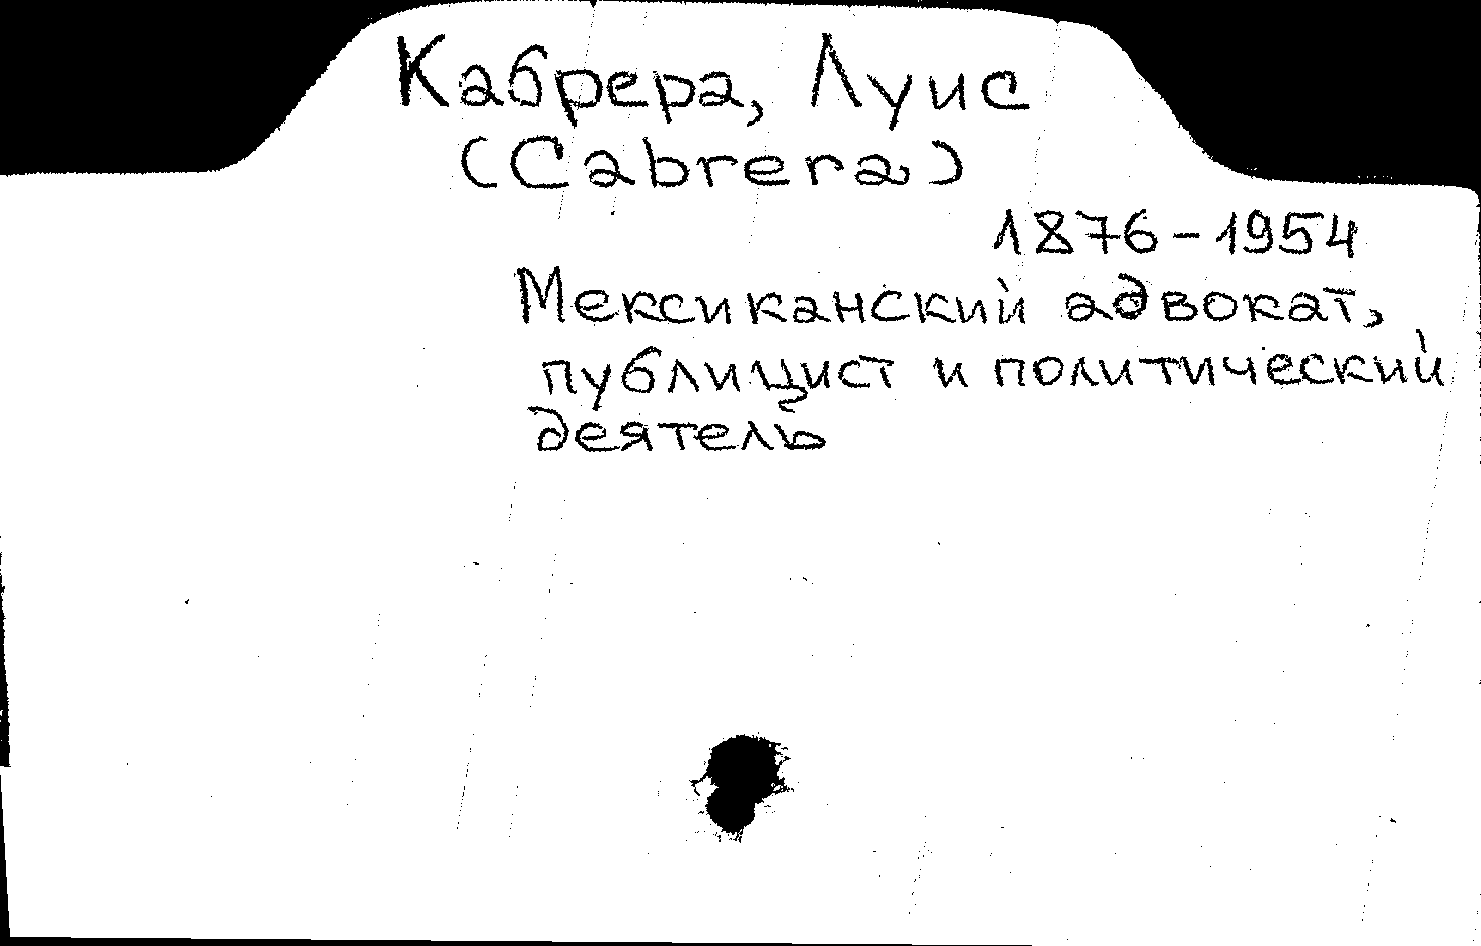 Кабрера, Луис
(Cabrera)
1876-1954
Мексиканский адвокат,
публицист и политический
деятель